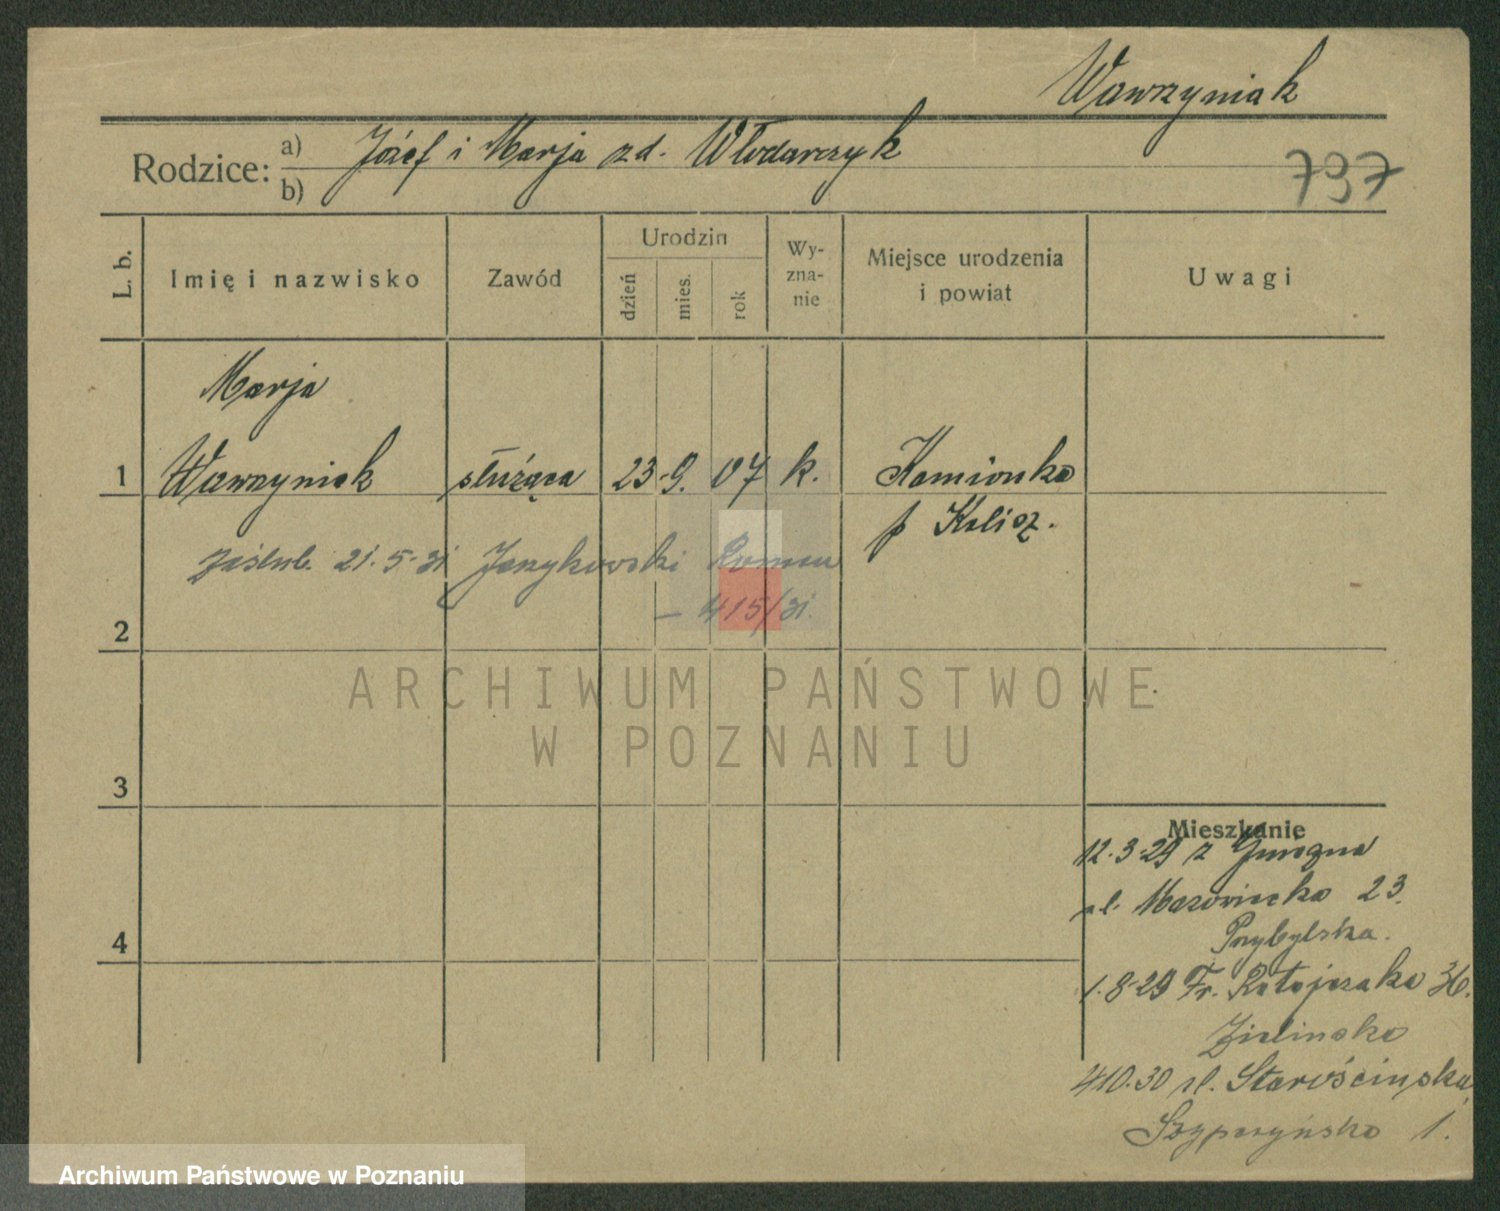 Wawrzyniak
Rodzice: a) Józef i Marja zd. Włodarczyk
b)
797
L. b.
Imię i nazwisko
Zawód
Urodzin
dzień
mies.
rok
Wy-
zna-
nie
Miejsce urodzenia
i powiat
Uwagi
Marja
1 Wawrzyniak służąca 23 9. 07 k. Kamionka
p Kalisz.
zaślub. 21.5.31 Jerzykowski Roman
2 – 415/31.
ARCHIWUM PAŃSTWOWE
W POZNANIU
3
Mieszkanie
12.3.29 z Gniezna
ul. Mazowiecka 23.
4
Przybylska.
1.8.29 Fr. Ratajczaka 36.
Zielinska
4 10.30 ul. Starościńska
1.
Archiwum Państwowe w Poznaniu